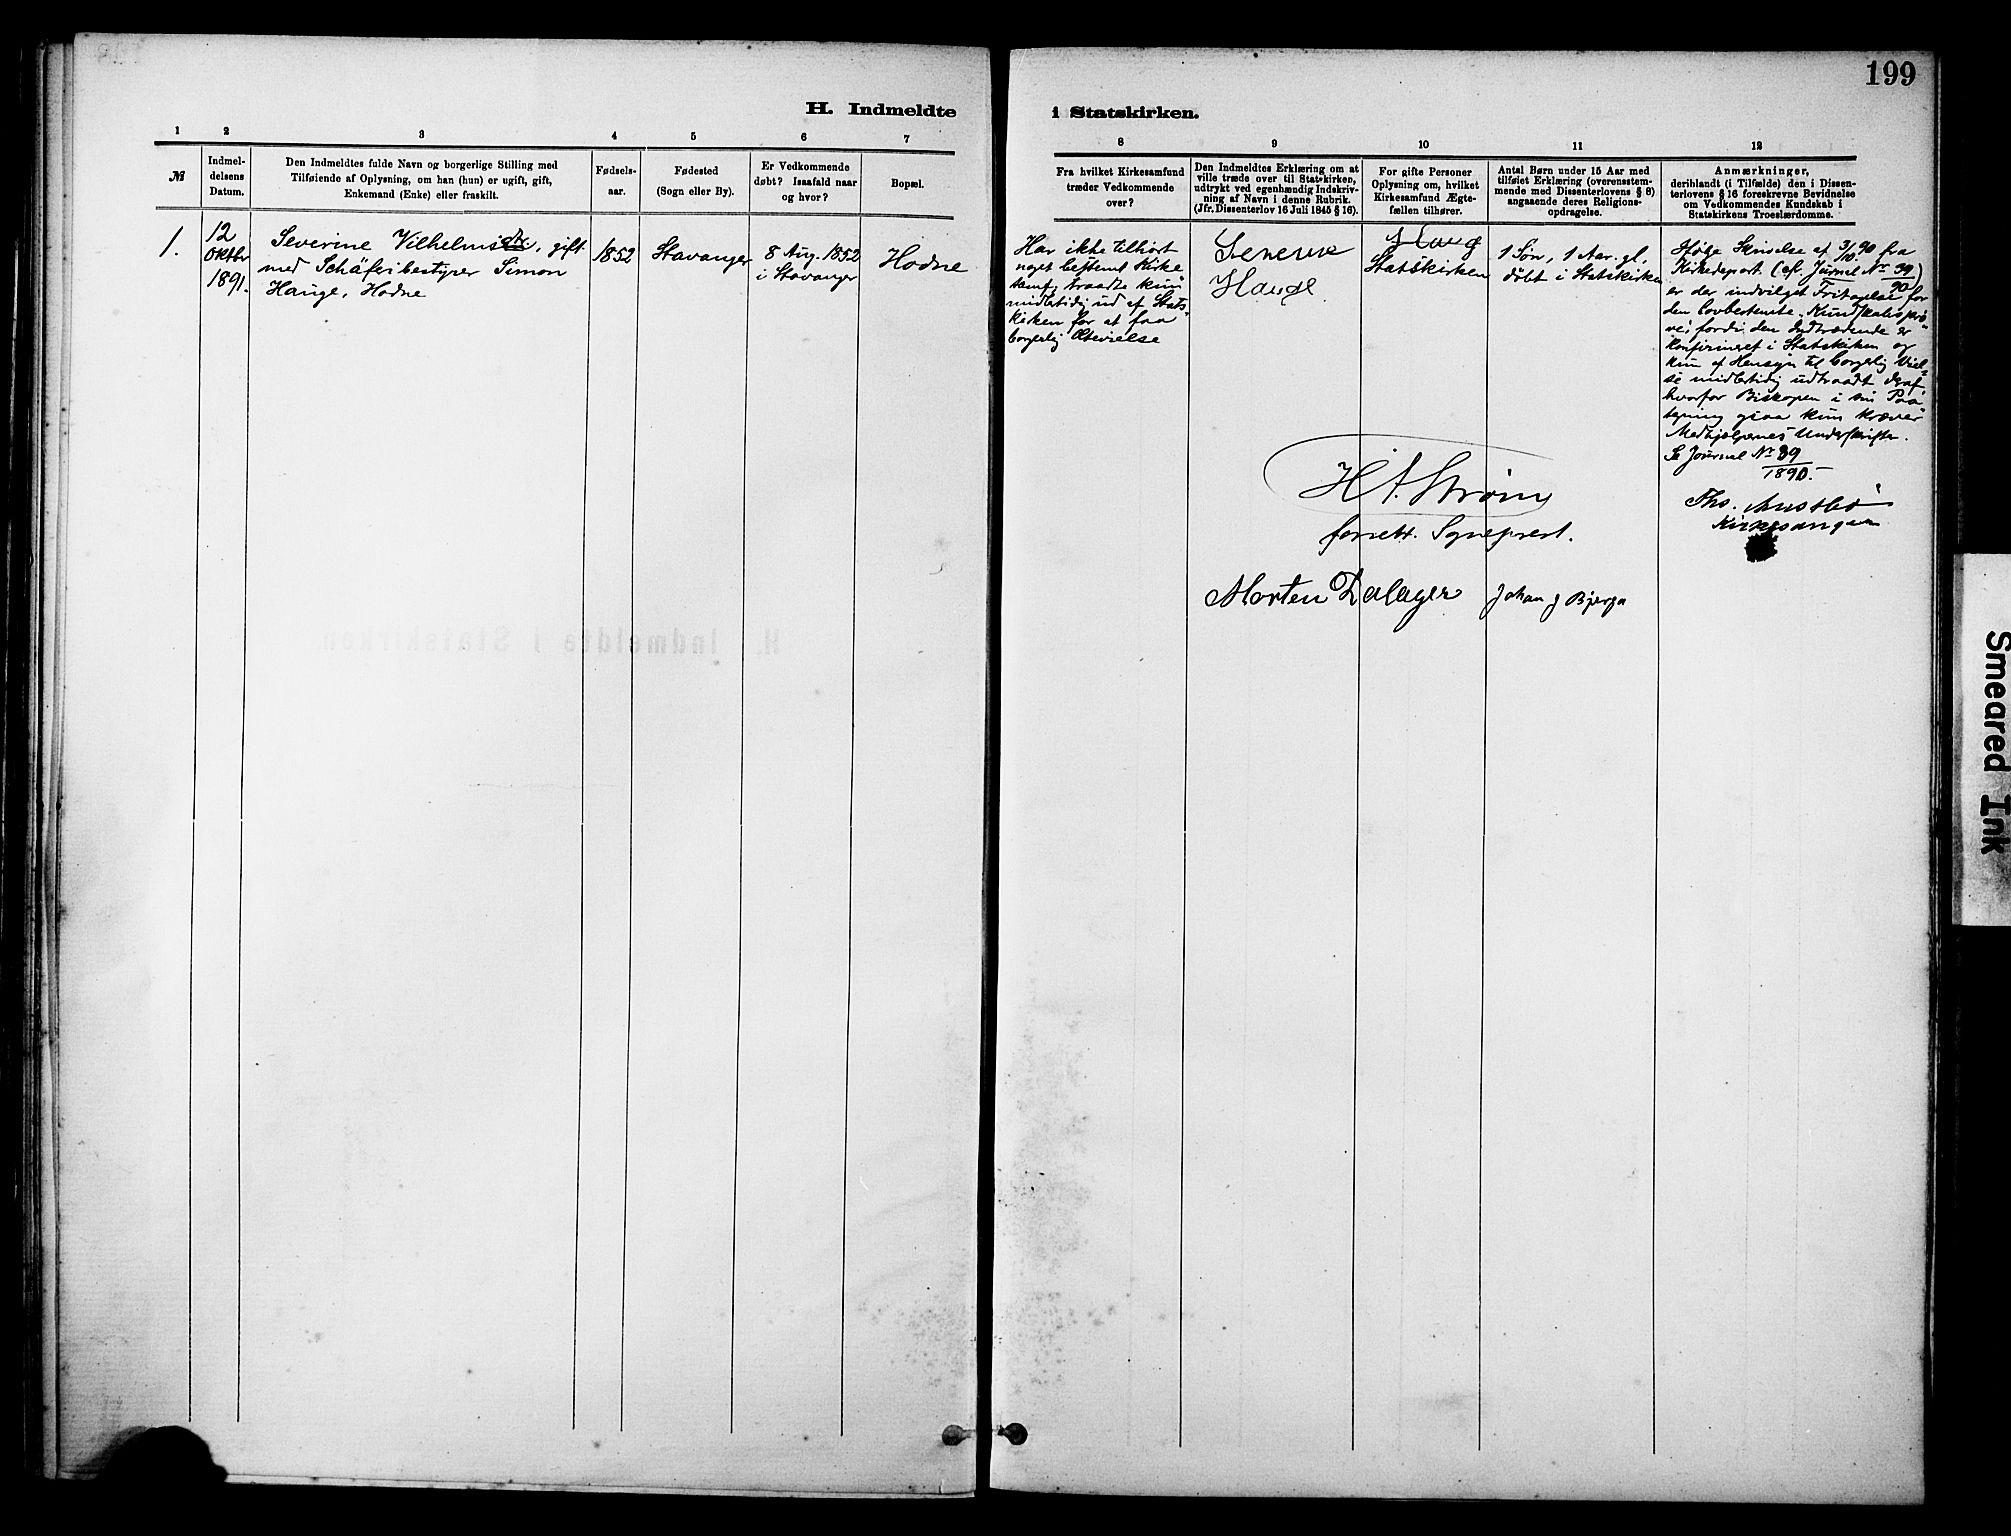 199
H. Indmeldte
i Statskirken.
1 2 3 4 5 6 7
8 9 10 11 12
№
Indmel-
delsens
Datum.
Den Indmeldtes fulde Navn og borgerlige Stilling med
Tilføiende af Oplysning, om han (hun) er ugift, gift,
Enkemand (Enke) eller fraskilt.
Fødsels-
aar.
Fødested
(Sogn eller By).
Er Vedkommende
døbt? Isaafald naar
og hvor?
Bopæl.
Fra hvilket Kirkesamfund
træder Vedkommende
over?
Den Indmeldtes Erklæring om at
ville træde over til Statskirken,
udtrykt ved egenhændig Indskriv-
ning af Navn i denne Rubrik.
(Jfr. Dissenterlov 16 Juli 1845 § 16).
For gifte Personer
Oplysning om, hvilket
Kirkesamfund Ægte-
fællen tilhører.
Antal Børn under 15 Aar med
tilføiet Erklæring (overensstem-
mende med Dissenterlovens § 8)
angaaende deres Religions-
opdragelse.
Anmærkninger,
deriblandt (i Tilfælde) den i Dissen-
terlovens § 16 foreskrevne Bevidnelse
om Vedkommendes Kundskab i
Statskirkens Troeslærdomme.
1.
12
Oktbr
1891.
Severine Vilhelmsdtr., gift
med Schäferibestyrer Simon
Hauge, Hodne
1852
Stavanger
8 Aug. 1852
i Stavanger
Hodne
Har ikke tilhört
noget bestemt Kirke
samf, traadte kun
midlertidig ud af Stats-
kirken for at faa
borgerlig Ætevielse
Severine
Hauge
Statskirken
1 Sön, 1 Aar gl.
döbt i Statskirken
Ifølge Skrivelse af 3/10 90 fra
Kirkedepart. (cf. Journal Nr 39/90)
er der indvilget Fritagelse for
den lovbestemte Kundskabsprø-
ve, fordi den Indtrædende er
konfirmeret i Statskirken og
kun af Hensyn til borgerlig Viel-
se midlertidig udtraadt deraf,
hvorfor Biskopen i sin Paa-
tegning ogsaa kun kræver
Medhjælpernes Underskrifter.
Se Journal Nr 39
1890.
H A. Strøm
forrett. Sogneprest.
Ths. Austbø
Kirkesanger
Morten Dalager
Johan J Bjerga
H. Indmeldte i Statskirken
Smeared Ink